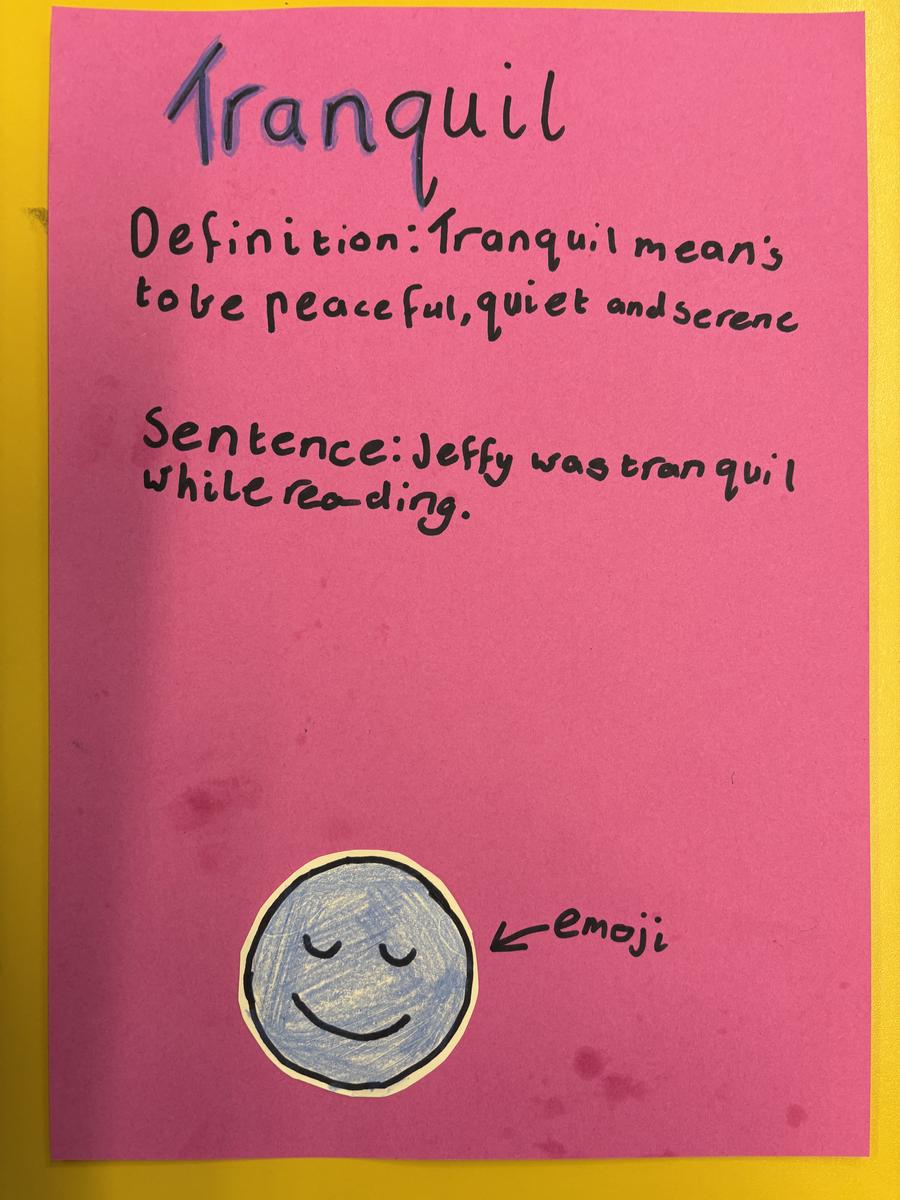 Tranquil
Definition: Tranquil mean's
to be peaceful, quiet and serene
Sentence: Jeffy was tranquil
while reading.
emoji